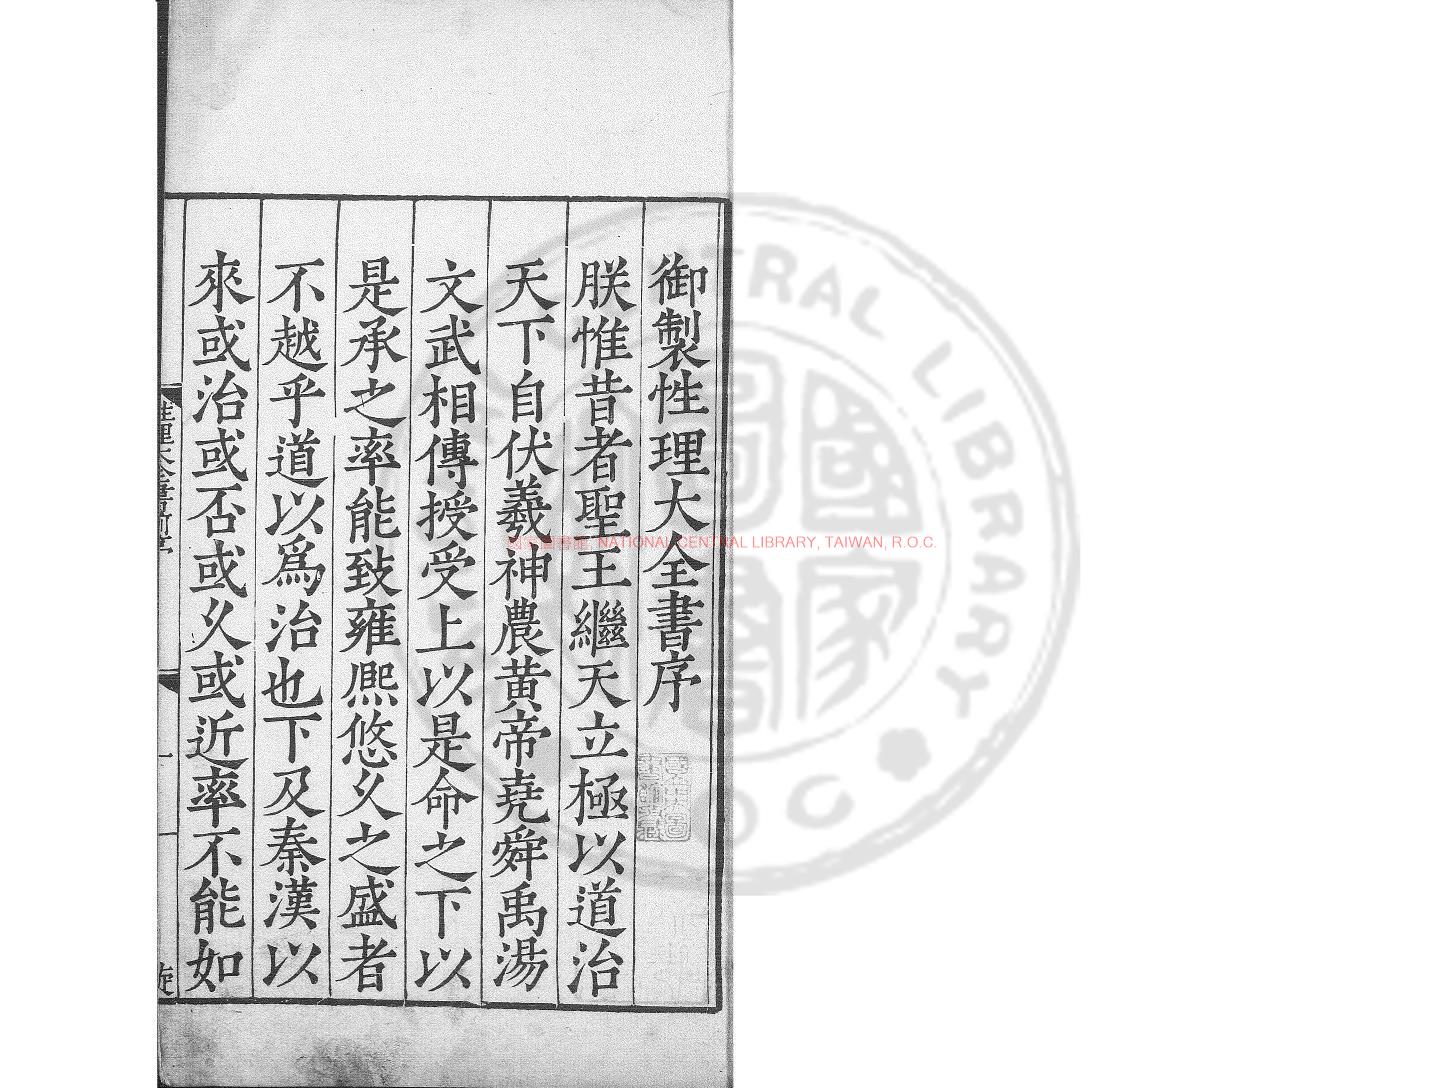 御製性理大全書序
朕惟昔者聖王繼天立極以道治
天下自伏羲神農黄帝堯舜禹湯
文武相傳授受上以是命之下以
是承之率能致雍熈悠久之盛者
不越乎道以爲治也下及秦漢以
來或治或否或久或近率不能如
國家圖書館 NATIONAL CENTRAL LIBRARY, TAIWAN, R.O.C.